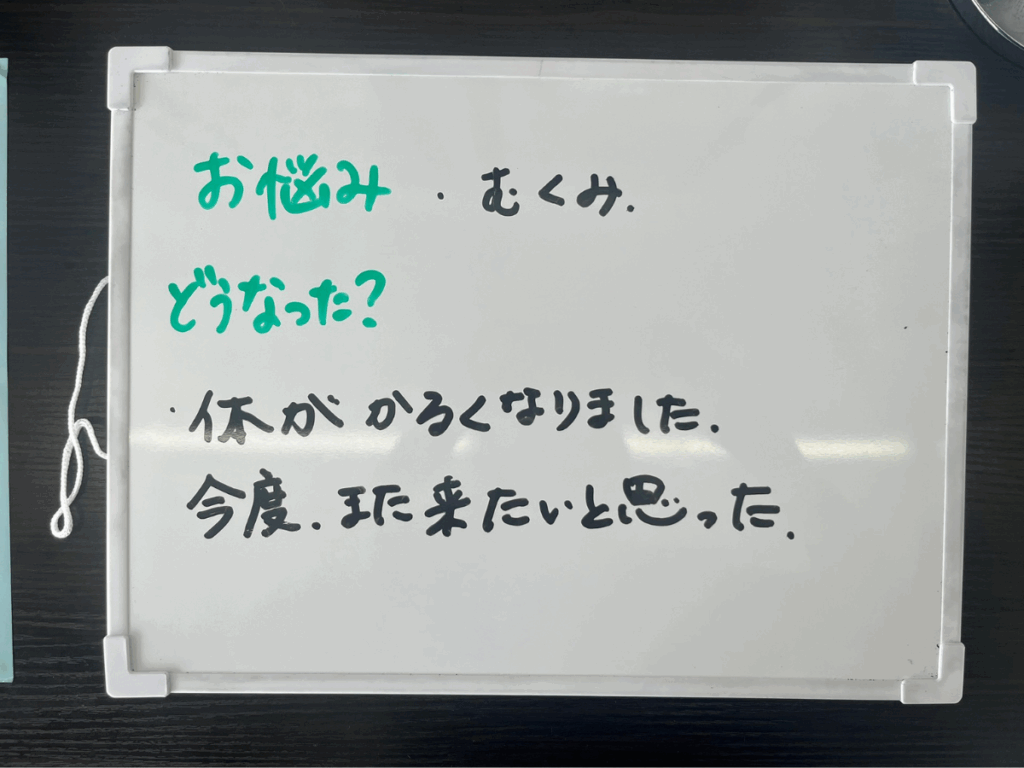 お悩み ・ むくみ.
どうなった?
・体がかるくなりました.
今度.また来たいと思った.